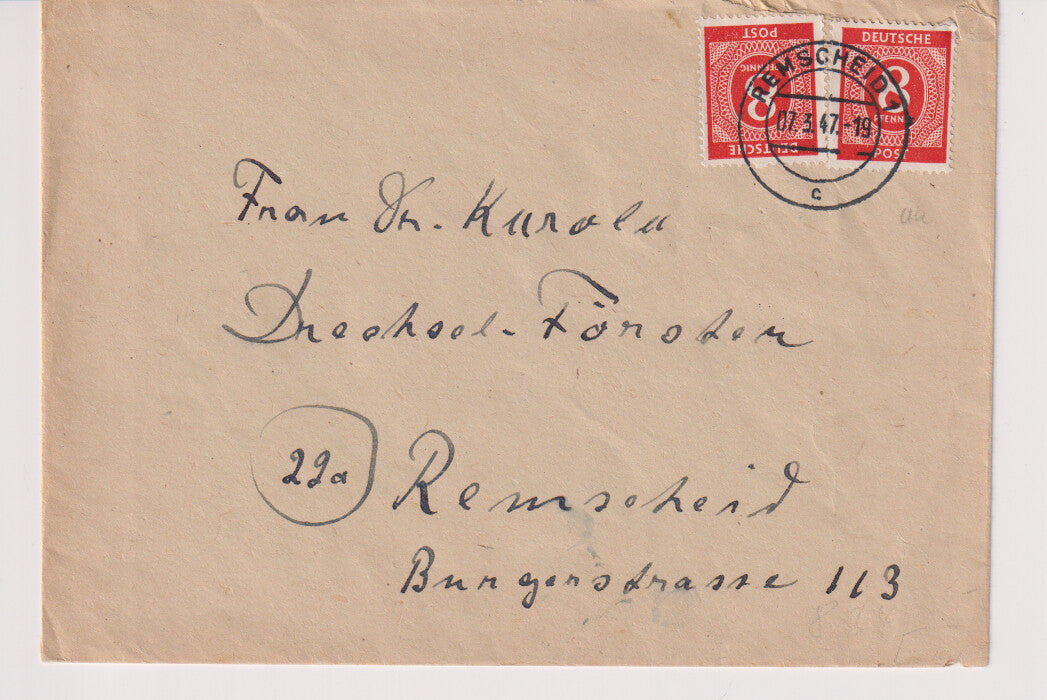 DEUTSCHE
POST
8
PFENNIG
DEUTSCHE
POST
8
PFENNIG
REMSCHEID 1
07.3.47.-19
c
Frau Dr. Karola
Drechsel-Förster
22a
Remscheid
Burgerstrasse 113